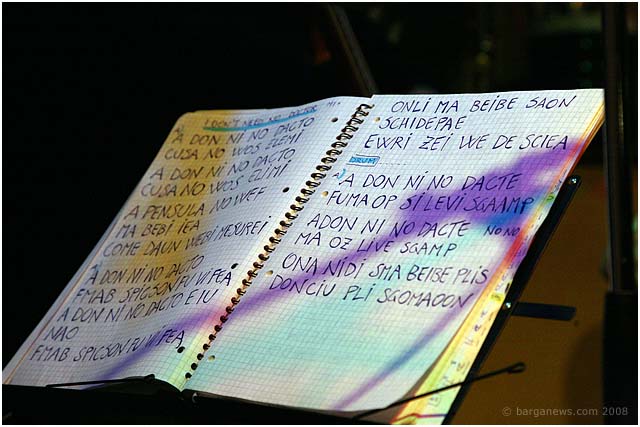 I DON'T NEED NO DOCTOR MI-
A DON NI NO DACTO
CUSA NO WOS ELEMI
A DON NI NO DACTO
CUSA NO WOS ELIMI
A PENSULA NO WEF
MA BEBI IEA
COME DAUN WEBI MESUREI
A DON NI NO DACTO
FMAB SPICSON FU VIFEA
A DON NI NO DACTO E IU
NAO
FMAB SPICSON FU VIFEA
ONLI MA BEIBE SAON
SCHIDEPAE
EWRI ZEI WE DE SCIEA
DRUM
A DON NI NO DACTE
FUMA OP SI LEVI SGAAMP
ADON NI NO DACTE NO NO
MA OZ LIVE SGAMP
ONA NIDI SMA BEIBE PLIS
DONCIU PLI SGOMAOON
© barganews.com 2008